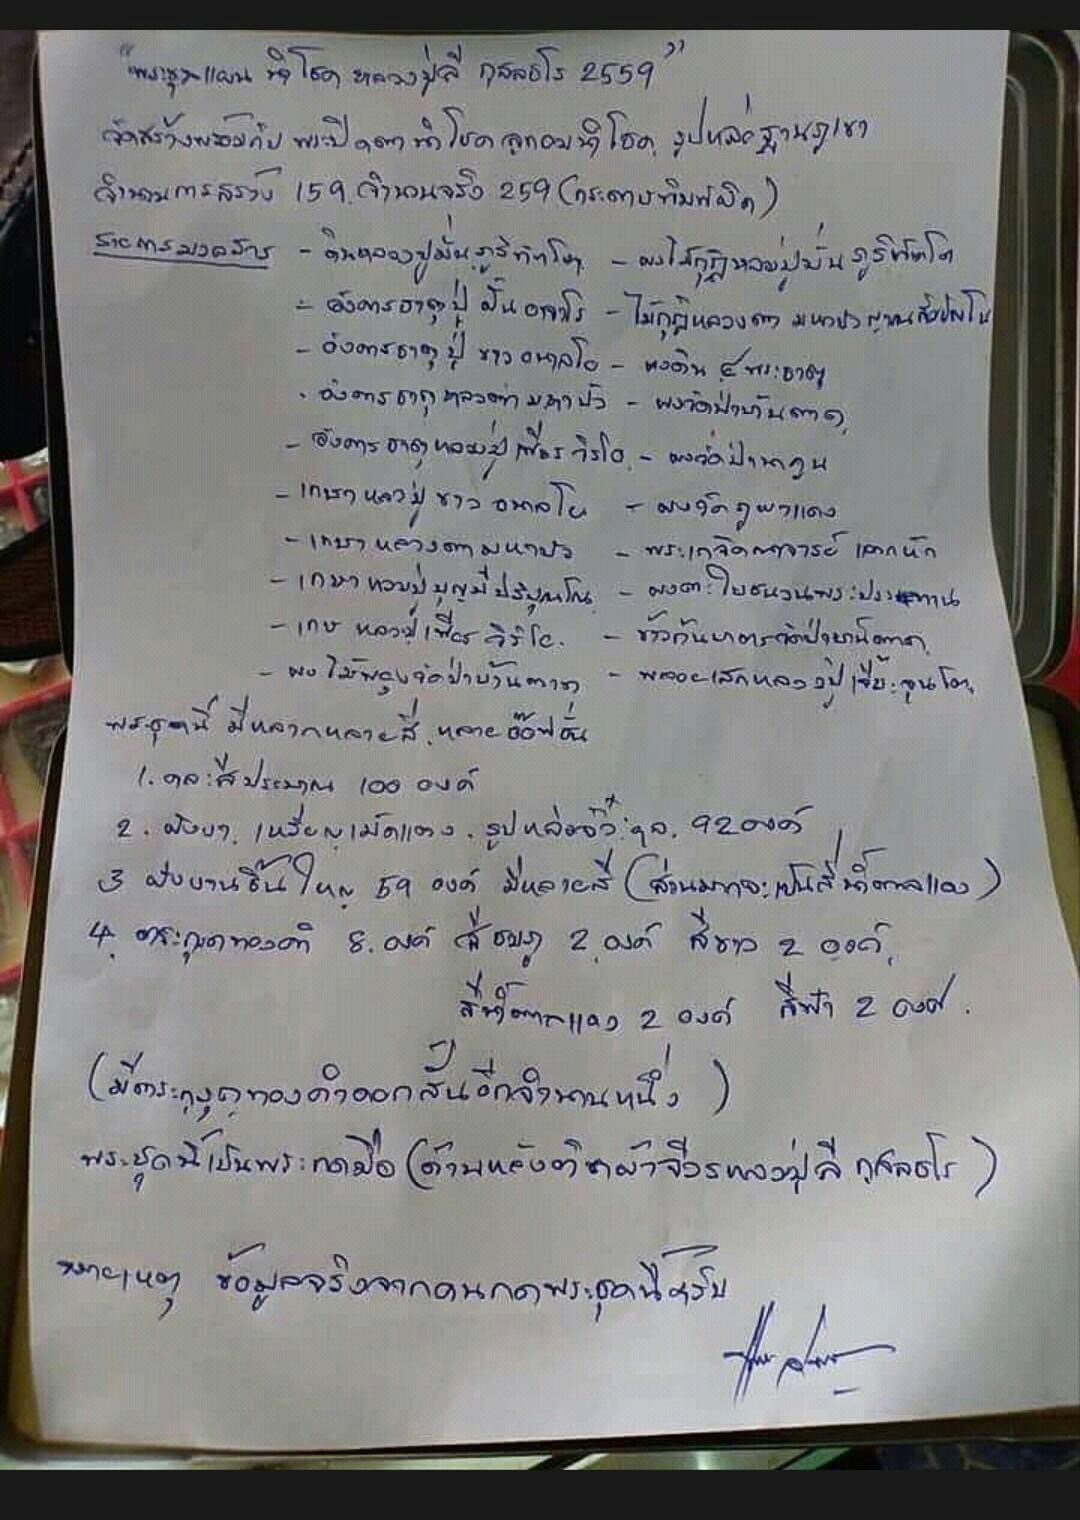 "พระขุนแผน นำโชค หลวงปู่ลี กุสลธโร 2559"
จัดสร้างพร้อมกับ พระปิดตานำโชค ลูกอมนำโชค, รูปหล่อฐานภูเขา
จำนวนการสร้าง 159, จำนวนจริง 259 (กระดาษพิมพ์ผิด)
รายการมวลสาร - ดินหลวงปู่มั่น ภูริทัตโต, - ผงไม้กุฏิหลวงปู่มั่น ภูริทัตโต
- อังคารธาตุปู่ มั่น - ไม้กุฏิหลวงตา มหาบัว ญาณสัมปันโน
- อังคารธาตุ ปู่ ขาว อนาลโย - ผงดิน ๔ พระธาตุ
- อังคารธาตุ หลวงตามหาบัว - ผงวัดป่าบ้านตาด,
- อังคารธาตุหลวงปู่เพียร วิริโย, - ผงวัดป่านาคูณ
- เกษา หลวงปู่ ขาว อนาลโย - ผงวัดภูผาแดง
- เกษา หลวงตามหาบัว - พระเกจิคณาจารย์ แตกหัก
- เกษา หลวงปู่ บุญมี ปริปุณโณ, - ผงตะไบชนวนพระประธาน
- เกษ หลวงปู่เพียร วิริโย. - ข้าวก้นบาตรวัดป่าบ้านตาด,
- ผงไม้พยุงวัดป่าบ้านตาด - พลอยเสกหลวงปู่เจี๊ยะ จุนโท,
พระชุดนี้ มีหลากหลายสี, หลายอ๊อฟชั่น
1. คละสีประมาณ 100 องค์
2. ฝังยา, เหรียญเม็ดแตง, รูปหล่อจิ๋ว ๆล, 92 องค์
3 ฝังจานชิ้นใหญ่ 59 องค์ มีหลายสี (ส่วนมากจะเป็นสีน้ำตาลแดง)
4, ตระกุดทองคำ 8, องค์ สีชมภู 2, องค์ สีขาว 2 องค์,
สีน้ำตาลแดง 2 องค์ สีฟ้า 2 องค์.
(มีตระกุดทองคำดอกสั้นอีกจำนวนหนึ่ง)
พระชุดนี้เป็นพระกดมือ (ด้านหลังติดผ้าจีวรหลวงปู่ลี กุสลธโร)
หมายเหตุ ข้อมูลจริงจากคนกดพระชุดนี้ครับ